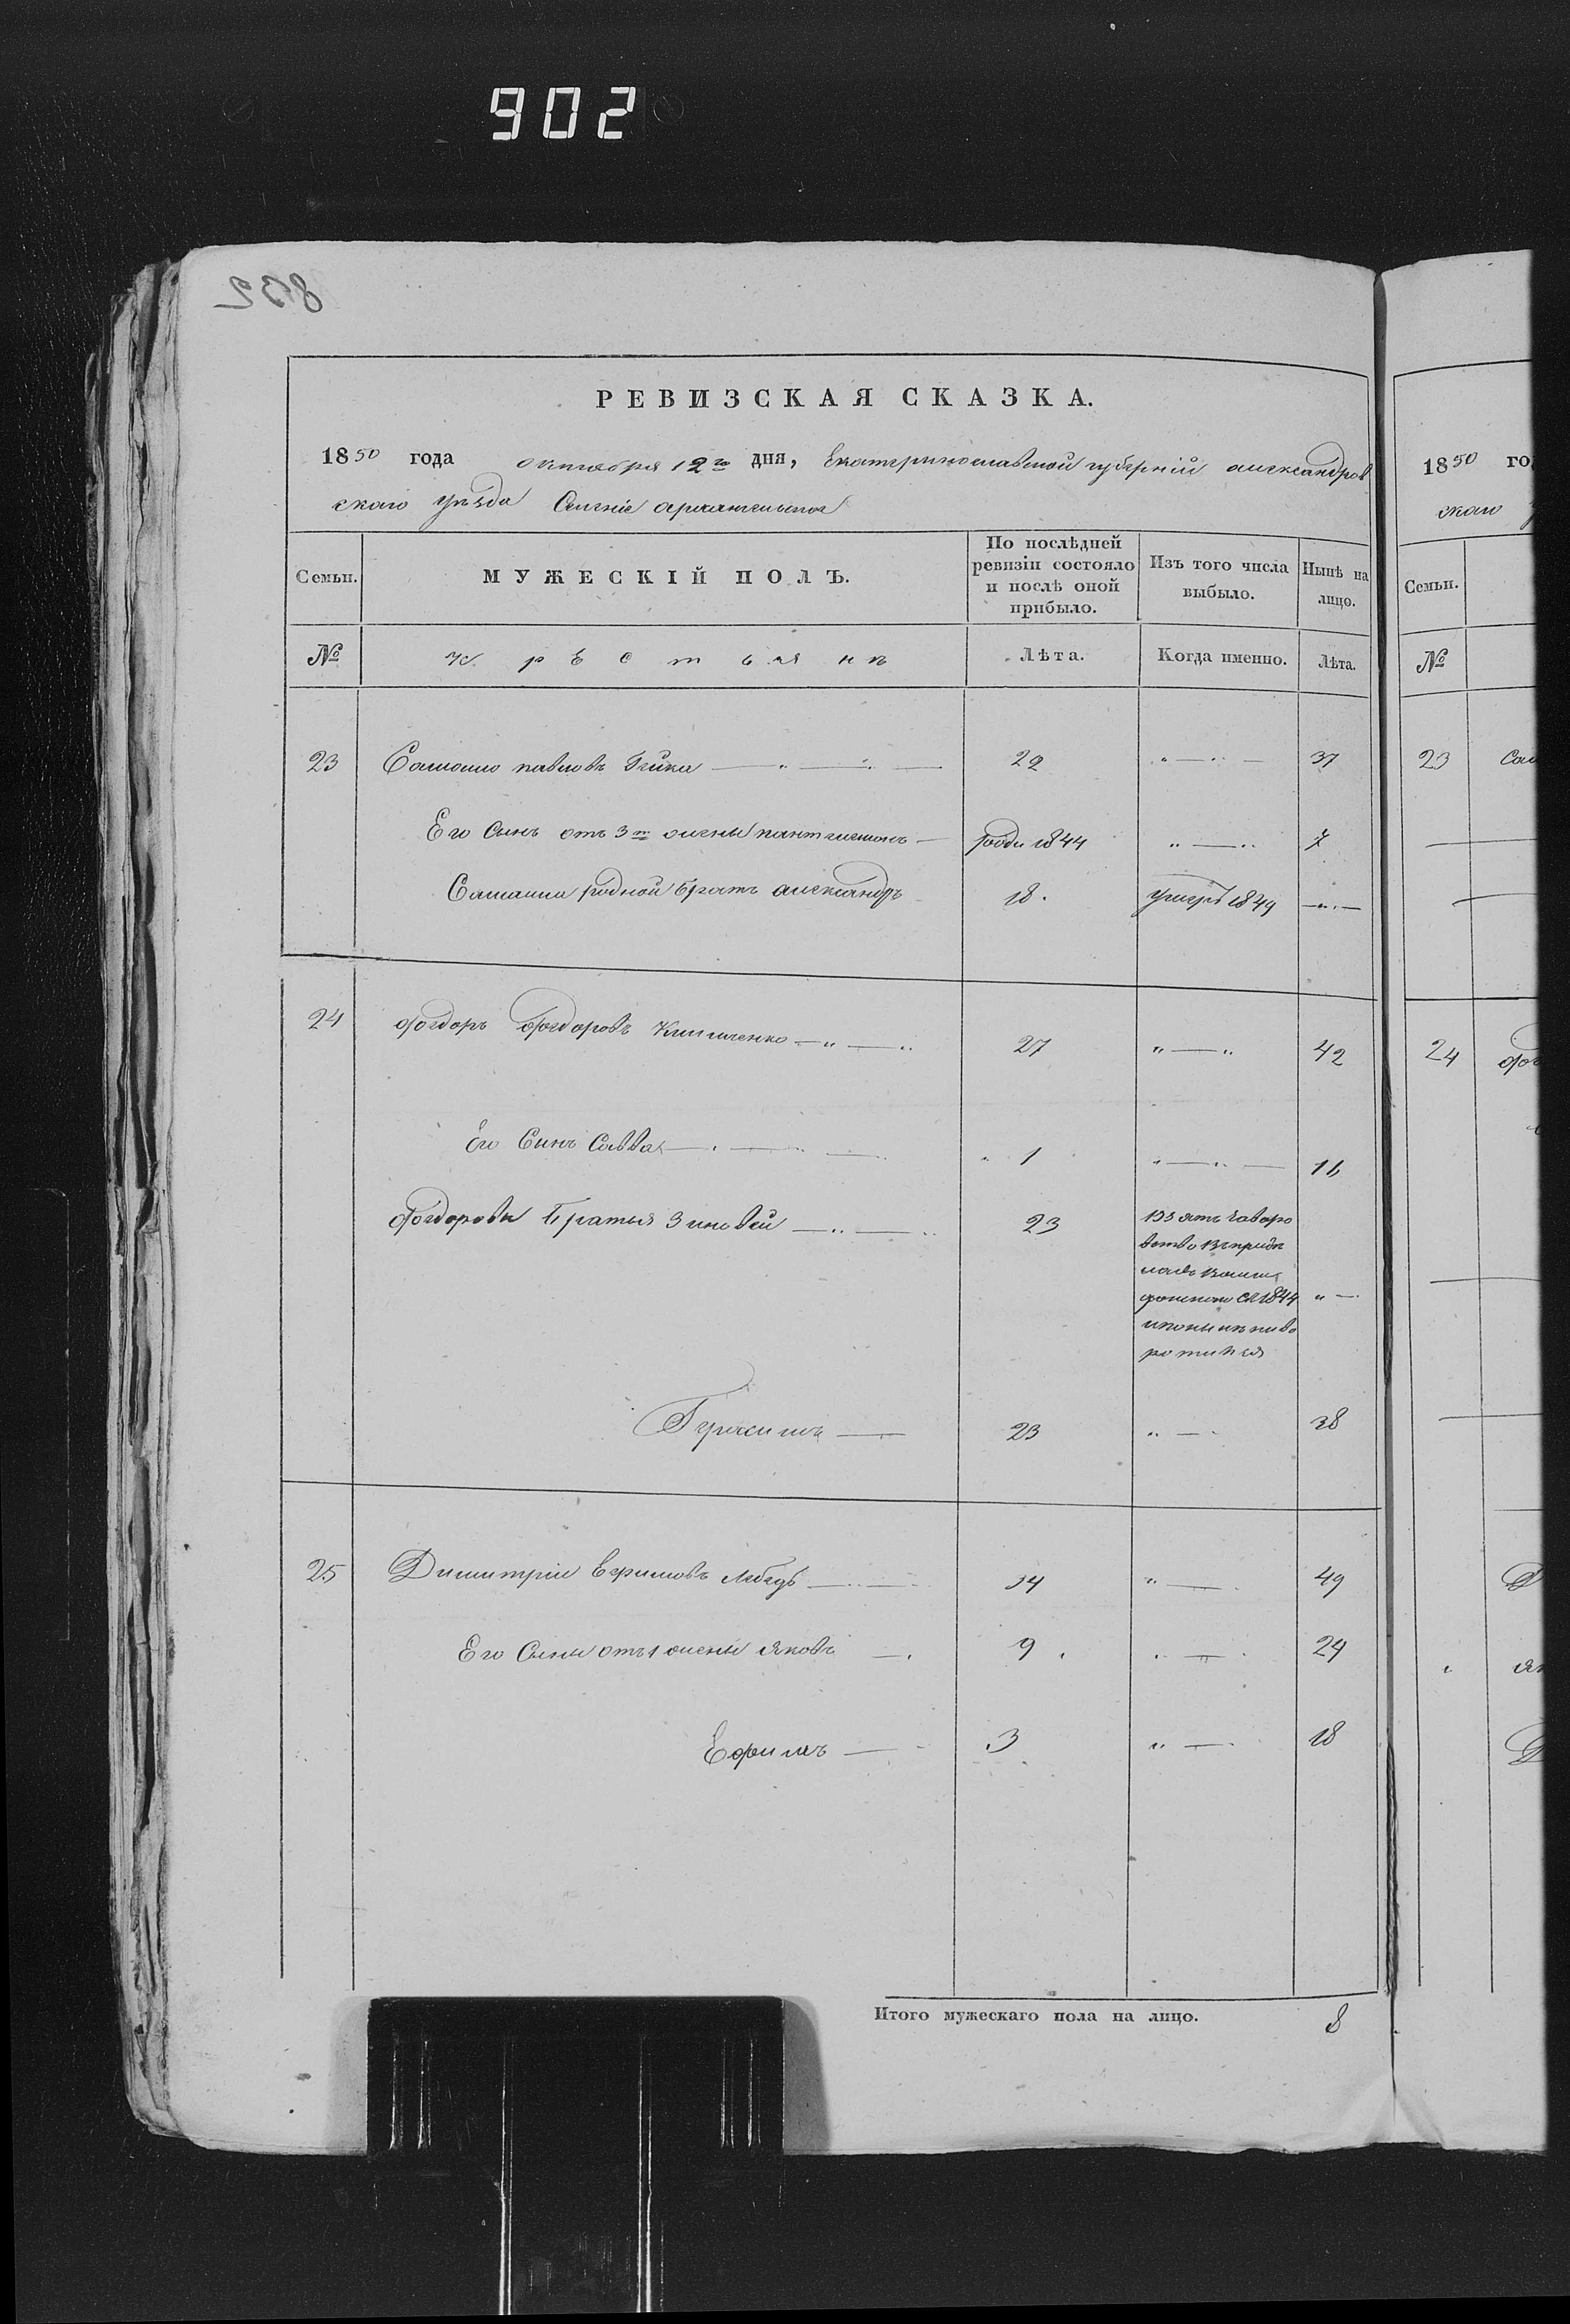 902
832
РЕВИЗСКАЯ СКАЗКА.
1850 года октября 12го дня, Екатеринославской губерніи александров
скаго уѣзда Селеніе архангельское
Семьи.
МУЖЕСКІЙ ПОЛЪ.
По послѣдней ревизіи состояло и послѣ оной прибыло.
Изъ того числа выбыло.
Нынѣ на лицо.
№
крестьянъ
Лѣта.
Когда именно.
Лѣта.
23 павловъ 22 37
Его Сынъ отъ 3й жены 1844 7
родной братъ александръ 18. умеръ 1849
24 Федоръ Федоровъ 27 42
Его Сынъ Савва 1 16
Федоровы Братья Зиновей 23
1844
Герасимъ 23 38
25 Димитрій Ефимовъ Лебедь 34 49
Его Сыны отъ 1 жены яковъ 9 24
Ефимъ 3 18
Итого мужескаго пола на лицо. 8
1850 го
скаго
Семьи.
№
23
24